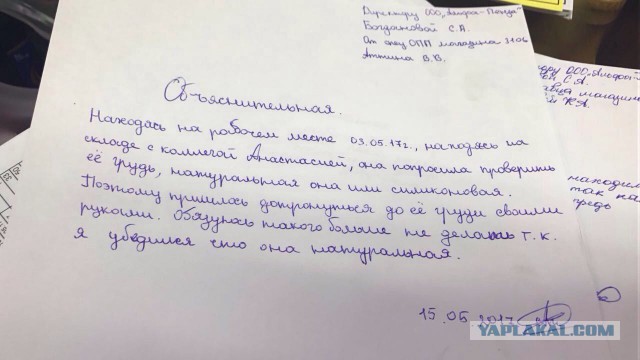 Директору ООО „Альфа-Пенза"
Богдановой С.А.
От спец ОПП магазина 3106
Аттина В.В.
Объяснительная.
Находясь на рабочем месте 03.05.17г., находясь на
складе с коллегой Анастасией, она попросила проверить
её грудь, натуральная она или силиконовая.
Поэтому пришлось дотронуться до её груди своими
руками. Обязуюсь такого больше не делать т.к.
я убедился что она натуральная.
15.05.2017
ООО „Альфа
С.А.
магазина
находи
так ка
YAPLAKAL.COM